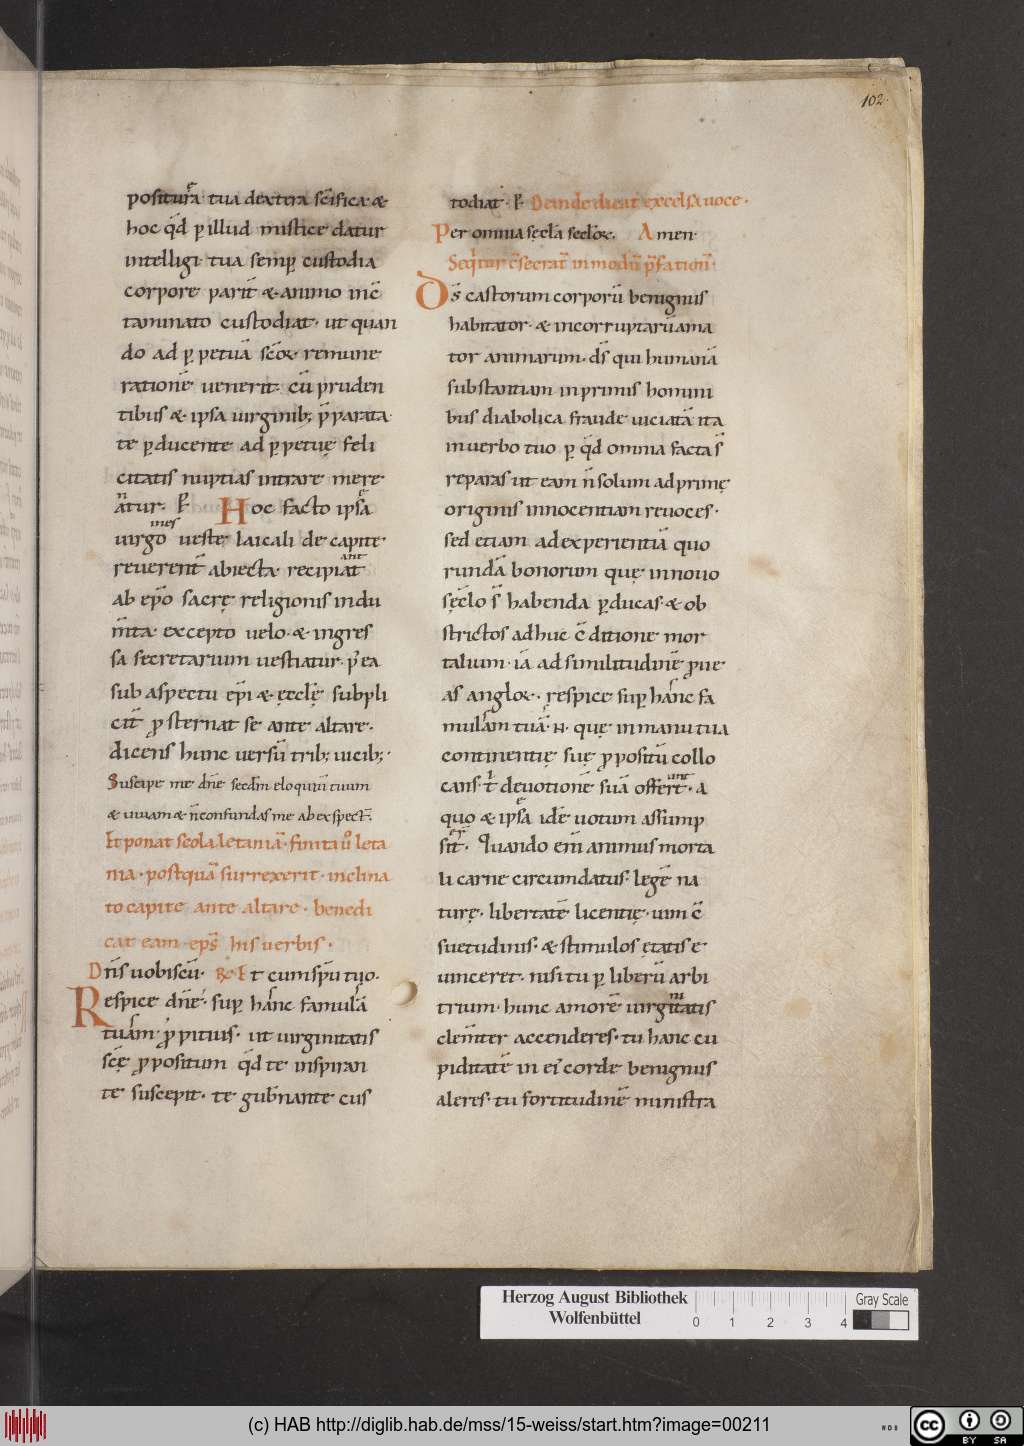 102.
positura tua dextera sc̄ifica &
hoc qd̄ p illud mistice datur
intelligi tua semp custodia
corpore parit̄ & animo inc̄
taminato custodiat· ut quan
do ad ppetuā sc̄oꝝ remune
rationē venerit· cū pruden
tibus & ipsa uirginib; p̄parata
te pducente ad ppetuę feli
citatis nuptias intrare mere
atur· p̄ Hoc facto ipsa
uirgo ueste laicali de capite
reuerent̄ abiecta recipiat
ab ep̄o sacrę religionis indu
m̄ta excepto uelo· & ingres
sa secretarium uestiatur· p̄ ea
sub aspectu ep̄i & ęcclę subpli
cit̄ ꝓsternat se ante altare·
dicens hunc uersū trib; uicib;·
Suscipe me dn̄e secdm̄ eloquiū tuum
& uiuam & n̄ confundas me ab exspect̄.
Et ponat scola letaniā· finita ūo leta
nia· postquā surrexerit· inclina
to capite ante altare· benedi
cat eam ep̄s his uerbis·
Dn̄s uobiscū· R̷ Et cum sp̄u tuo·
Respice dn̄e· sup hanc famulā
tuam ꝓpitius· ut uirginitatis
scę ꝓpositum qd̄ te inspiran
te suscepit· te gub̄nante cus
todiat· p̄ Deinde dicat excelsa uoce·
Per omnia sęcla sęcloꝝ. Amen·
Seqt̄ur c̄secrat̄ in modū p̄fation̄·
Ds̄ castorum corporū benignus
habitator· & incorruptarū ama
tor animarum· ds̄ qui humanā
substantiam in primis homini
bus diabolica fraude uiciatā ita
in uerbo tuo p qd̄ omnia facta s̄
reparas ut eam n̄ solum ad primę
originis innocentiam reuoces·
sed etiam ad experientiā quo
rundā bonorum quę in nouo
sęclo s̄ habenda pducas· & ob
strictos adhuc c̄ditione mor
talium· iā ad similitudinē ꝓue
as angloꝝ· respice sup hanc fa
mulam tuā· N· quę in manu tua
continentię suę ꝓpositū collo
cans· t̄ deuotionē suā offert· a
quo & ipsa idē uotum assump
sit· Quando em̄ animus morta
li carne circumdatus· legē na
turę· libertatē licentię· uim c̄
suetudinis· & stimulos ętatis e
uinceret· nisi tu p liberū arbi
trium· hunc amorē uirginitatis
clem̄ter accenderes· tu hanc cu
piditatē in ei corde benignus
aleres· tu fortitudinē ministra
Herzog August Bibliothek
Wolfenbüttel
0 1 2 3 4
Gray Scale
(c) HAB http://diglib.hab.de/mss/15-weiss/start.htm?image=00211
cc BY SA